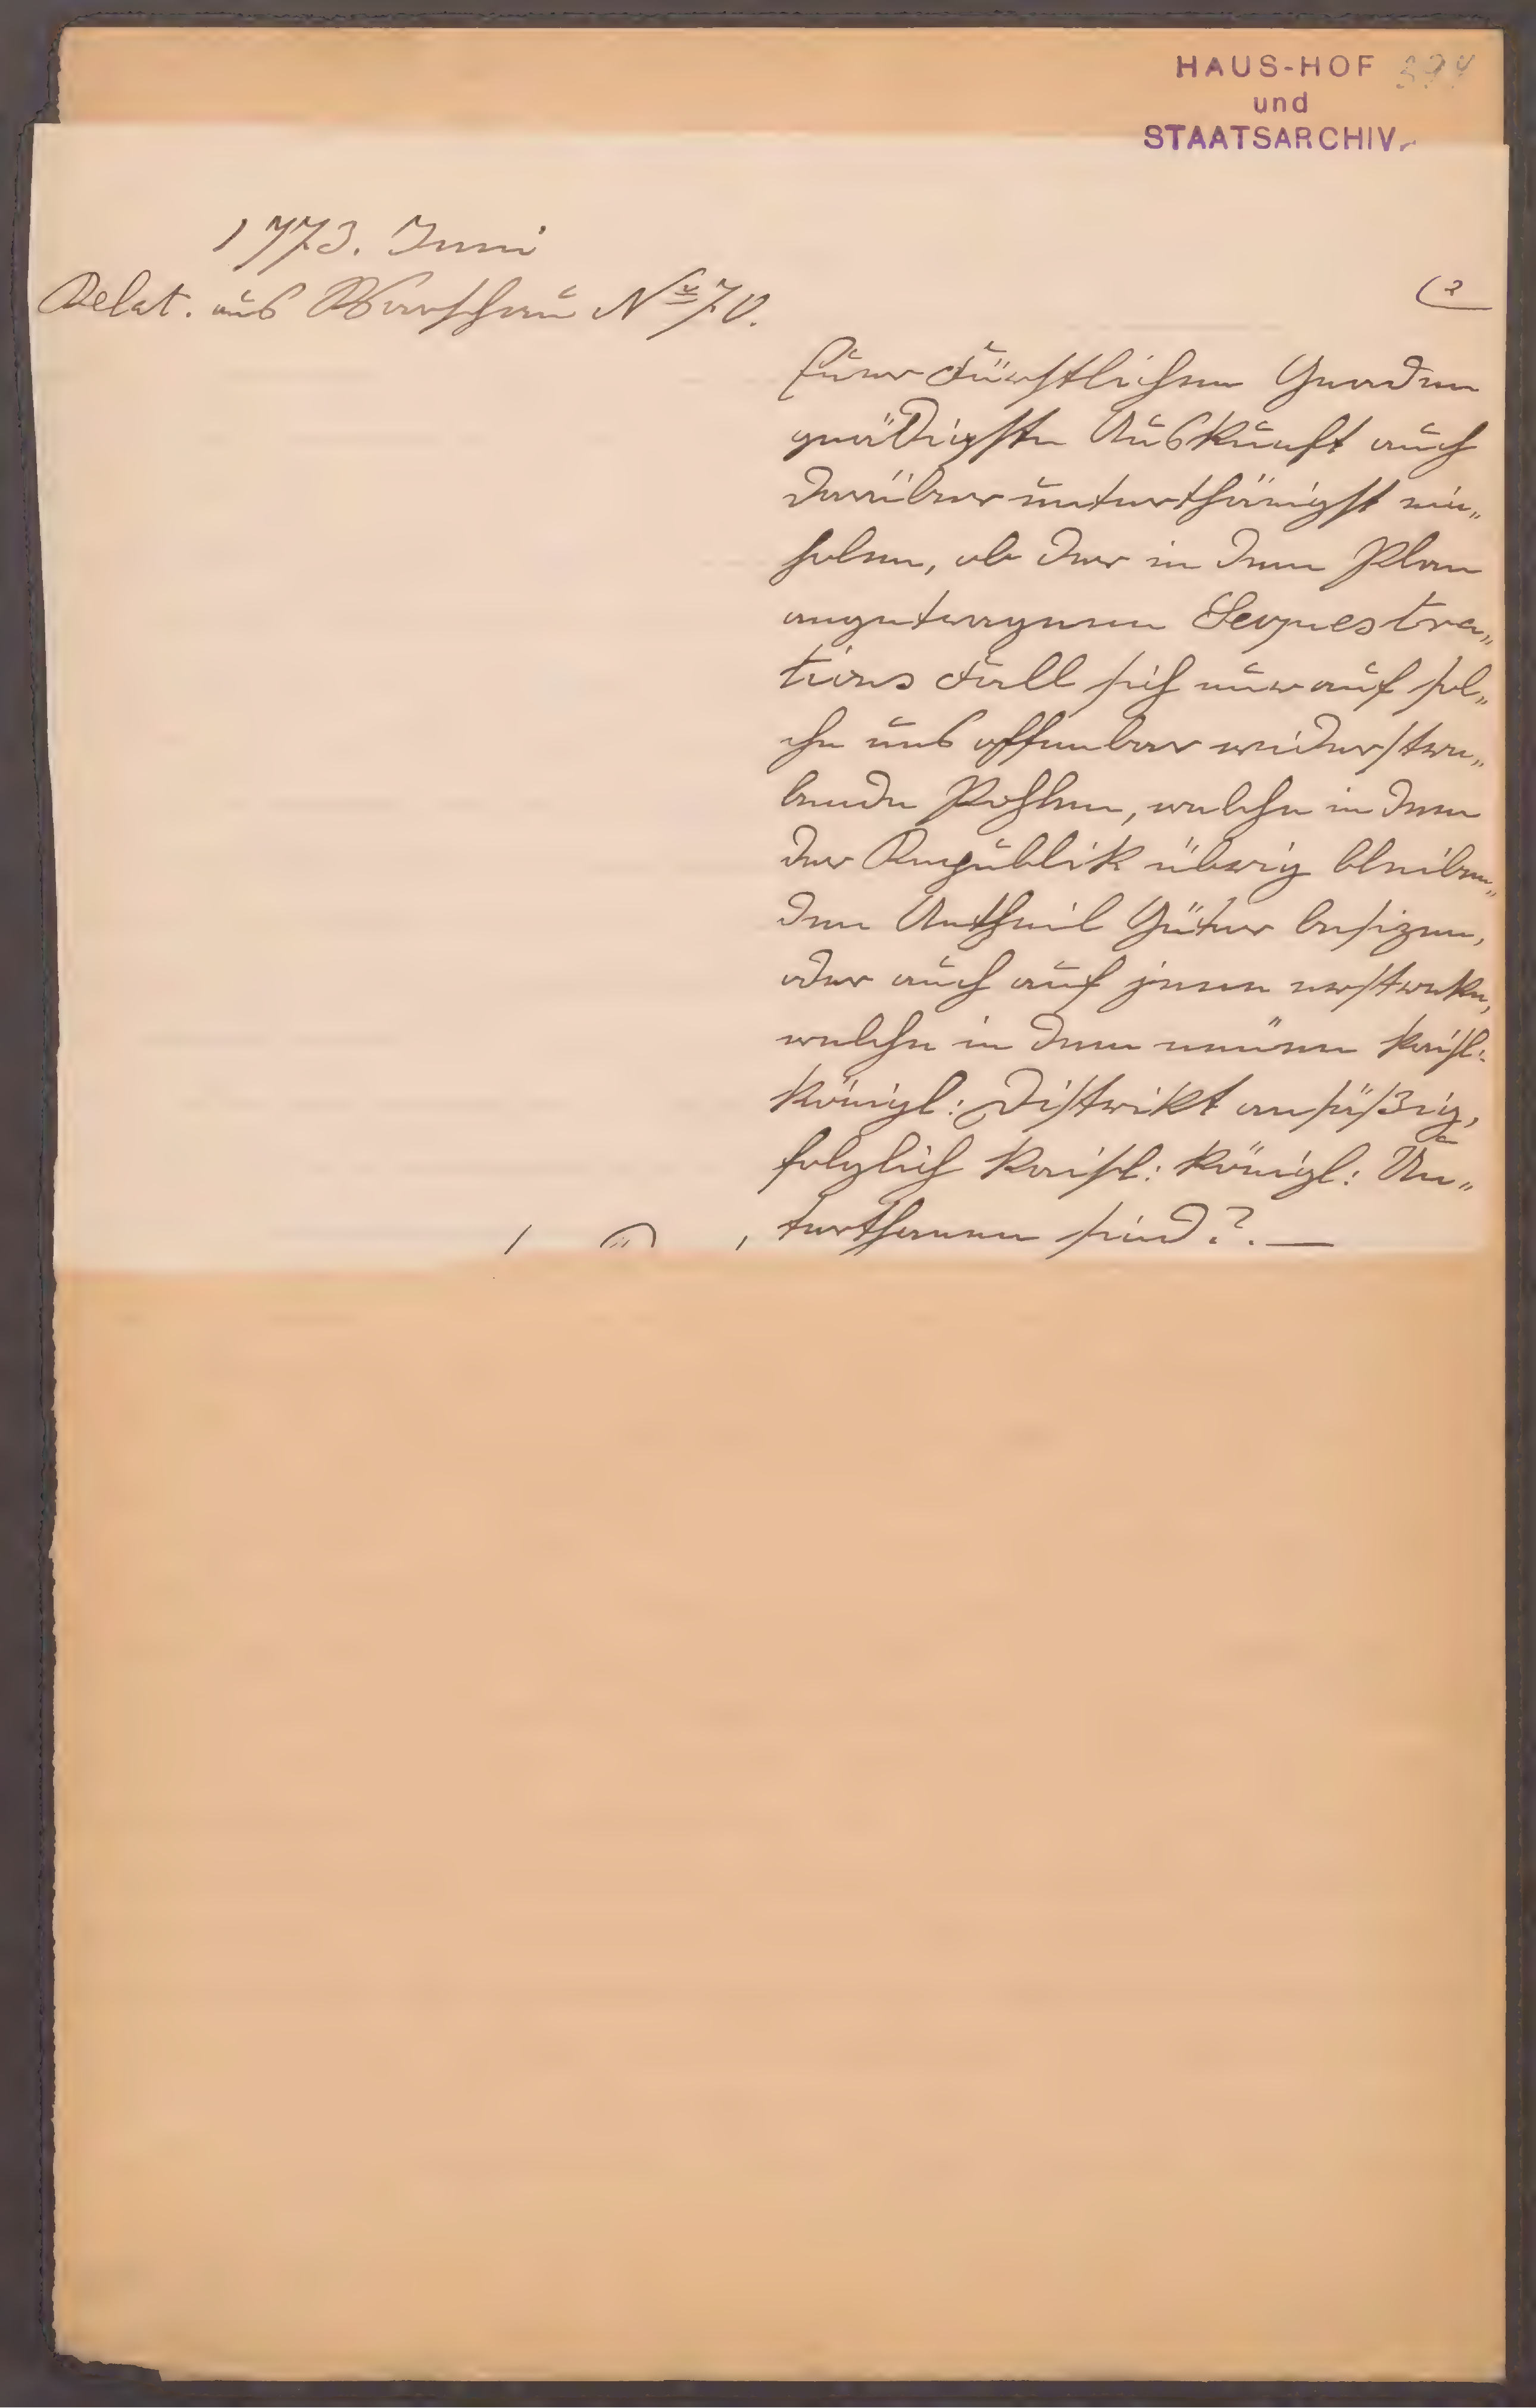 HAUS-HOF 394
und
STAATSARCHIV
1773. Juni
Relat. aus Warschau No 70.
(2
Euer Fürstlichen Gnaden
gnädigste Auskunft auch
darüber unterthänigst ein„
holen, ob der in dem Plan
angetragenen Sequestra„
tions Fall sich nur auf sol„
che uns offenbar widerstre„
bende Pohlen, welche in dem
der Republik übrig bleiben„
den Antheil Güter besizen,
oder auch auf jenen erstreke,
welche in dem neüen kaisl:
königl: Distrikt ansäßig,
folglich kaisl: königl: Un„
terthanen sind?. —